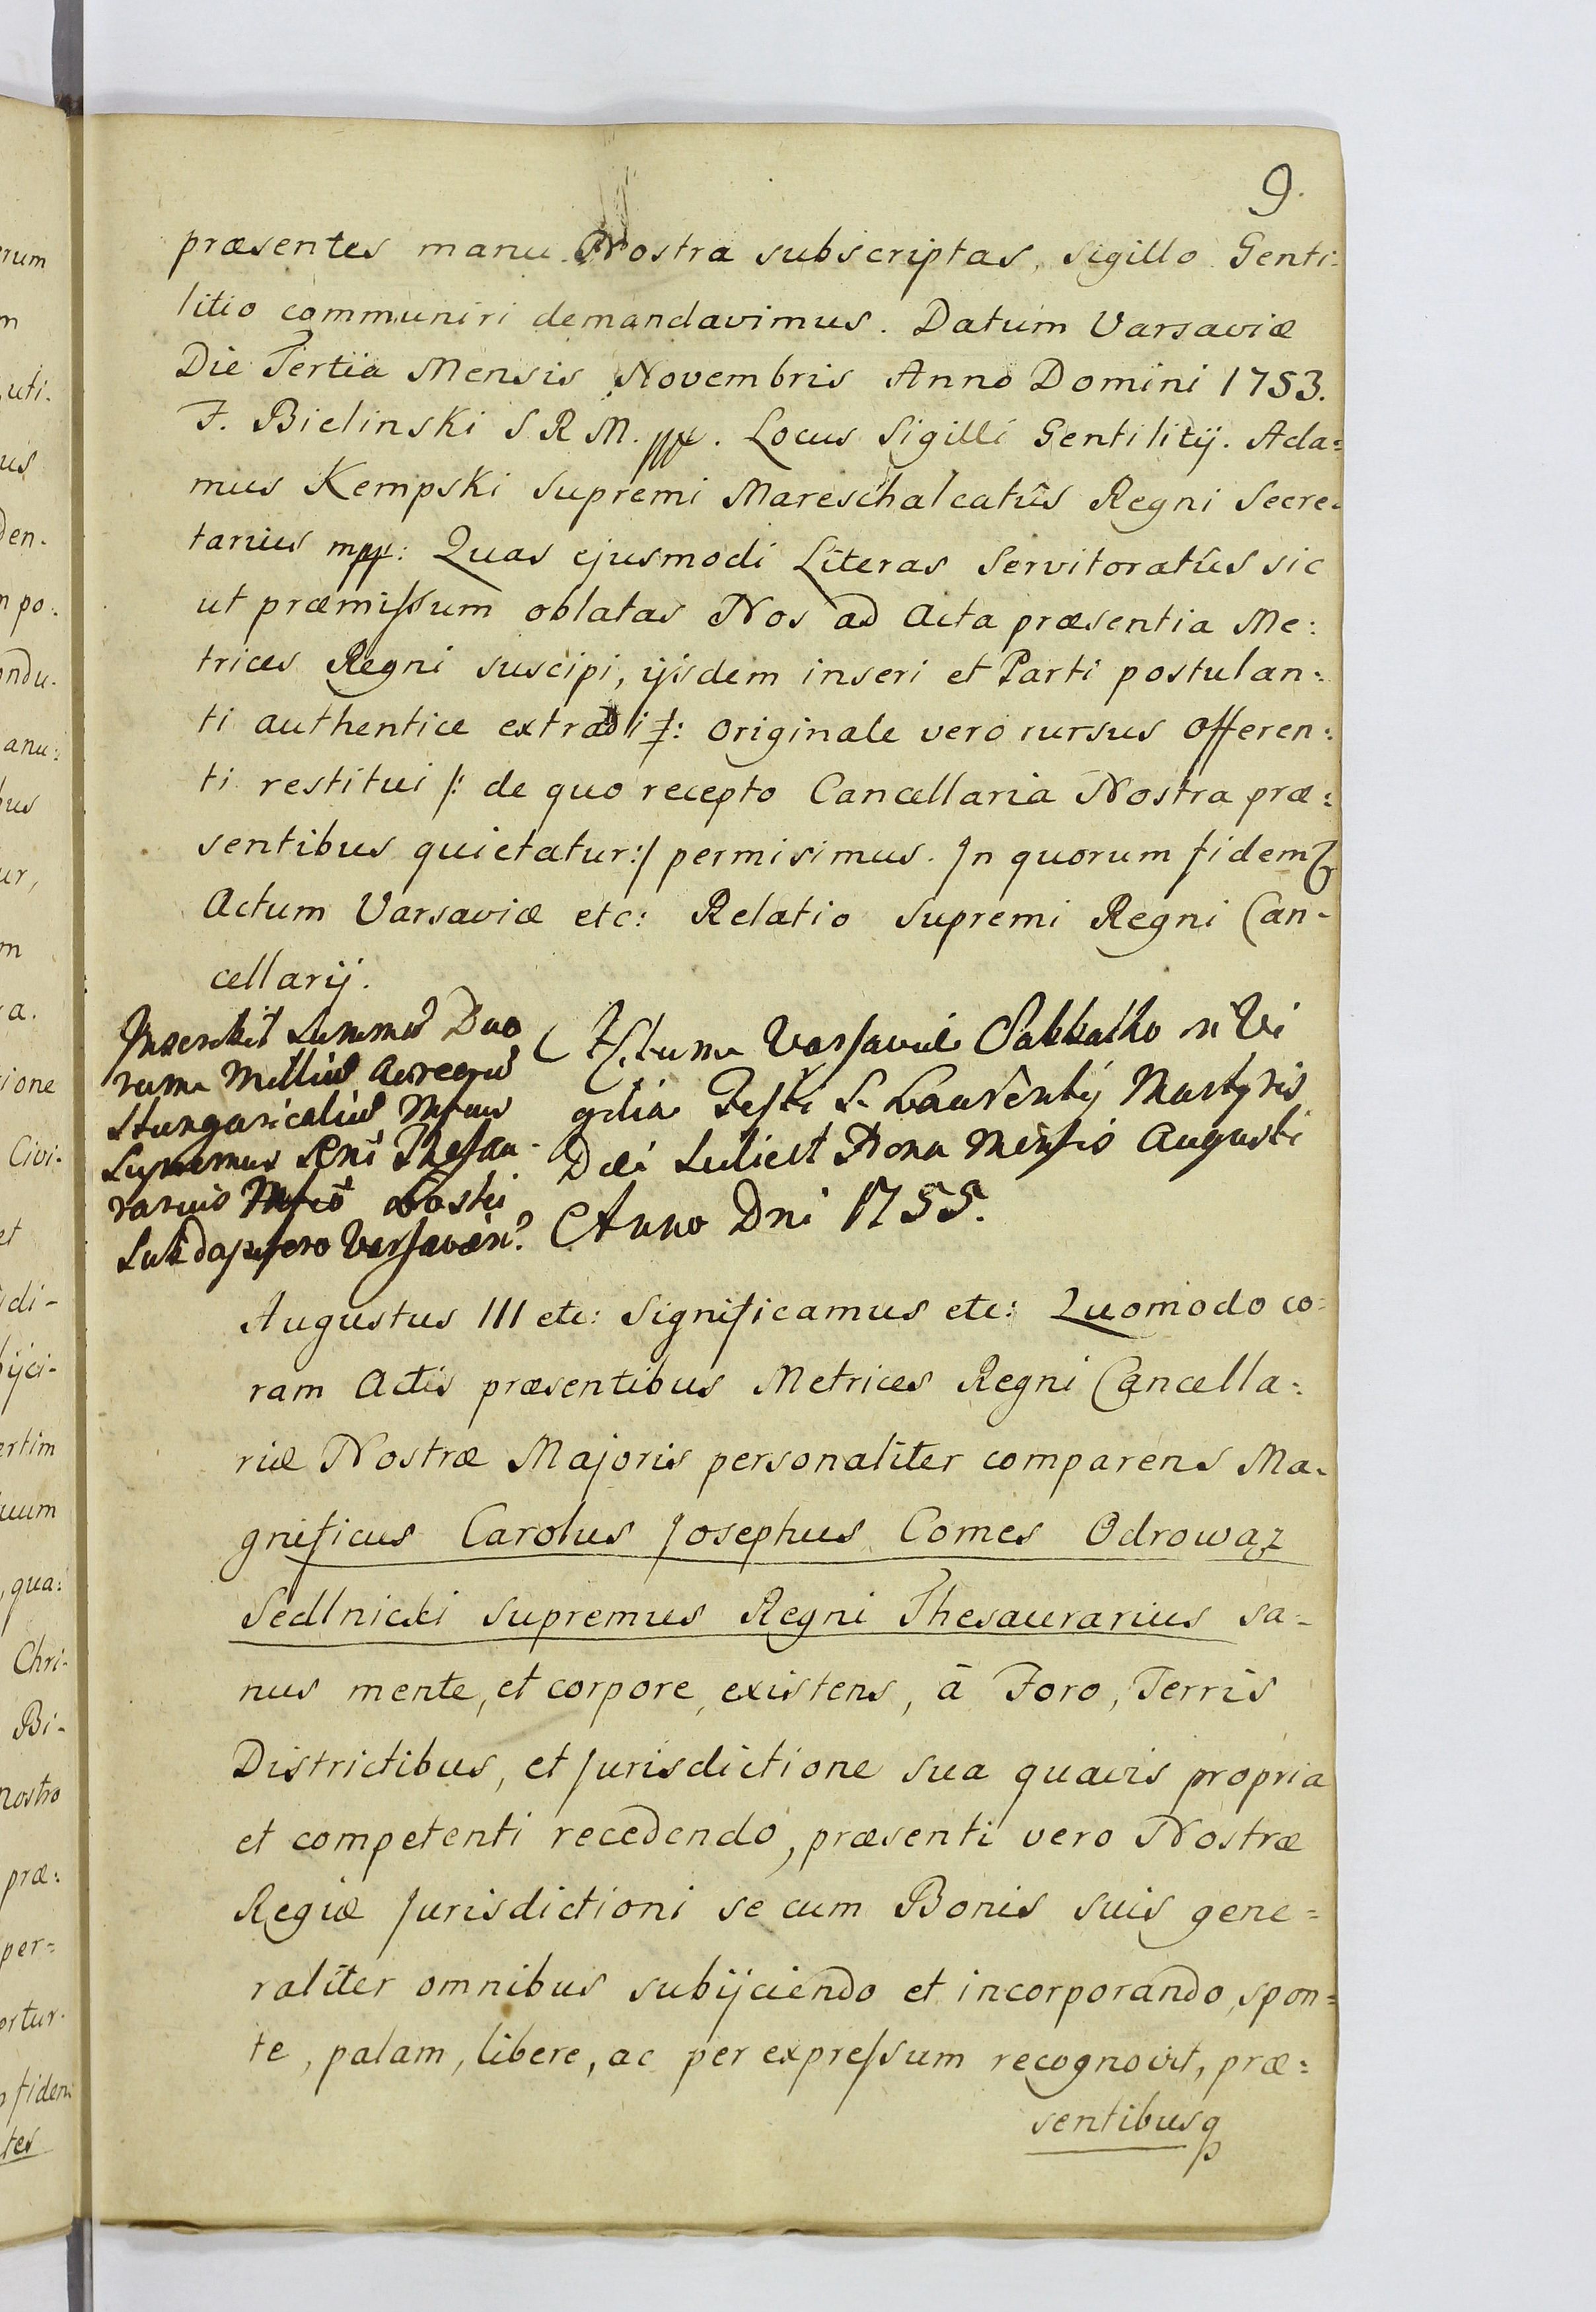 9.
præsentes manu Nostra subscriptas, sigillo Genti=
litio communiri demandavimus. Datum Varsaviæ
Die Tertia Mensis Novembris Anno Domini 1753.
F. Bielinski S R M. mpp. Locus Sigilli Gentilitij. Ada=
mus Kempski Supremi Mareschalcatûs Regni Secre=
tarius mpp: Quas ejusmodi Literas Servitoratûs sic
ut præmissum oblatas Nos ad Acta præsentia Me:
trices Regni suscipi, ijsdem inseri et Parti postulan=
ti authentice extradi /: originale vero rursus offeren=
ti restitui /: de quo recepto Cancellaria Nostra præ=
sentibus quietatur:/ permisimus. In quorum fidem
Actum Varsaviæ etc: Relatio Supremi Regni Can-
cellarij.
Inscribit Summã Duo
rum Milliũ Aureorũ
Hungaricaliũ Mfcus
Supremus Rgni Thesau-
rarius Mfco Łoski
Subdapifero Varsavien?
Actum Varsaviæ Sabbatho in Vi
gilia Festi S. Laurentij Martyris
Die scilicet Nona Mensis Augusti
Anno Dni 1755.
Augustus III etc: Significamus etc: Quomodo co=
ram Actis præsentibus Metrices Regni Cancella=
riæ Nostræ Majoris personaliter comparens Ma=
gnificus Carolus Josephus Comes Odrowąz
Sedlnicki Supremus Regni Thesaurarius sa=
nus mente, et corpore, existens, à Foro, Terris
Districtibus, et Jurisdictione sua quavis propria
et competenti recedendo, præsenti vero Nostræ
Regiæ Jurisdictioni se cum Bonis suis gene=
raliter omnibus subijciendo et incorporando, spon=
te, palam, libere, ac per expressum recognovit, præ=
sentibusq